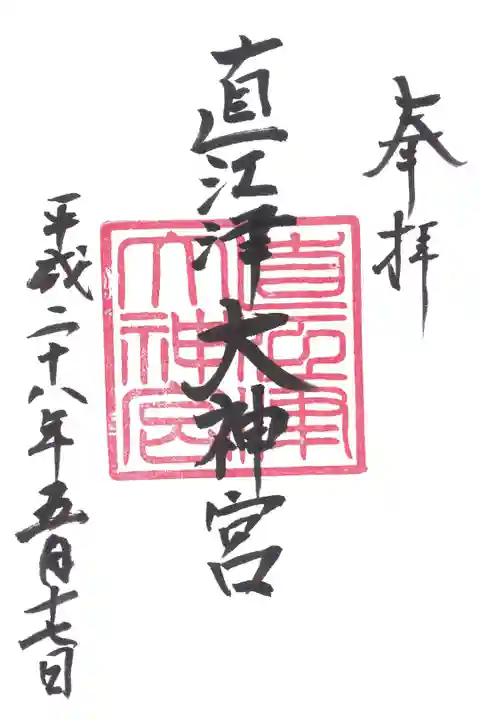 奉拝
直江津大神宮
平成二十八年五月十七日
直江津
大神宮